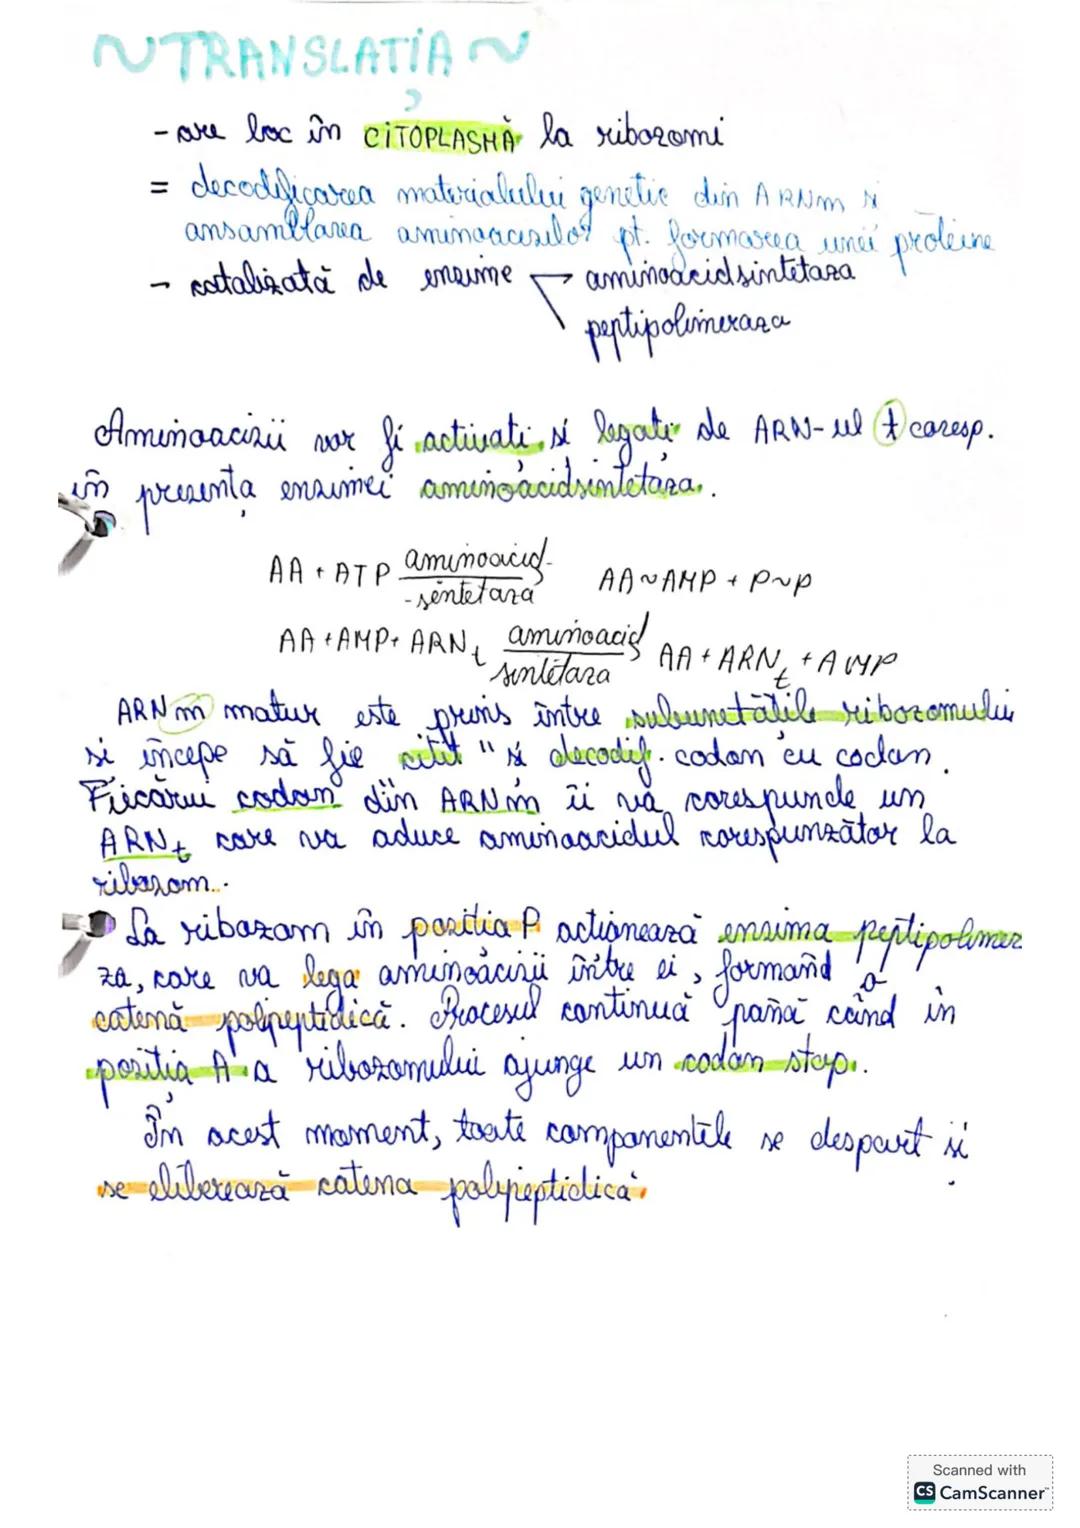 ~TRANSLAȚIA~
- are loc în CITOPLASMĂ la ribozomi
= decodificarea materialului genetic din ARNm și
ansamblarea aminoacizilor pt. formarea unei proteine
- catalizată de enzime → aminoacidsintetaza
peptipolimeraza
Aminoacizii vor fi activați și legați de ARN-ul t coresp.
în prezența enzimei aminoacidsintetaza.
AA + ATP aminoacid-
-sintetaza AA~AMP + P~P
AA+AMP+ ARNt aminoacid
sintetaza AA + ARNt + AMP
ARNm matur este prins între subunetățile ribozomului
și începe să fie citit" și decodif. codon cu codon.
Fiecărui codon din ARNm îi va corespunde un
ARNt care va aduce aminoacidul corespunzător la
ribozom.
La ribozom în poziția P acționează enzima peptipolimer
za, care va lega aminoacizii între ei, formând o
catenă polipeptidică. Procesul continuă până când în
poziția A a ribozomului ajunge un codon stop.
În acest moment, toate componentele se despart și
se eliberează catena polipeptidică.
Scanned with
CS CamScanner